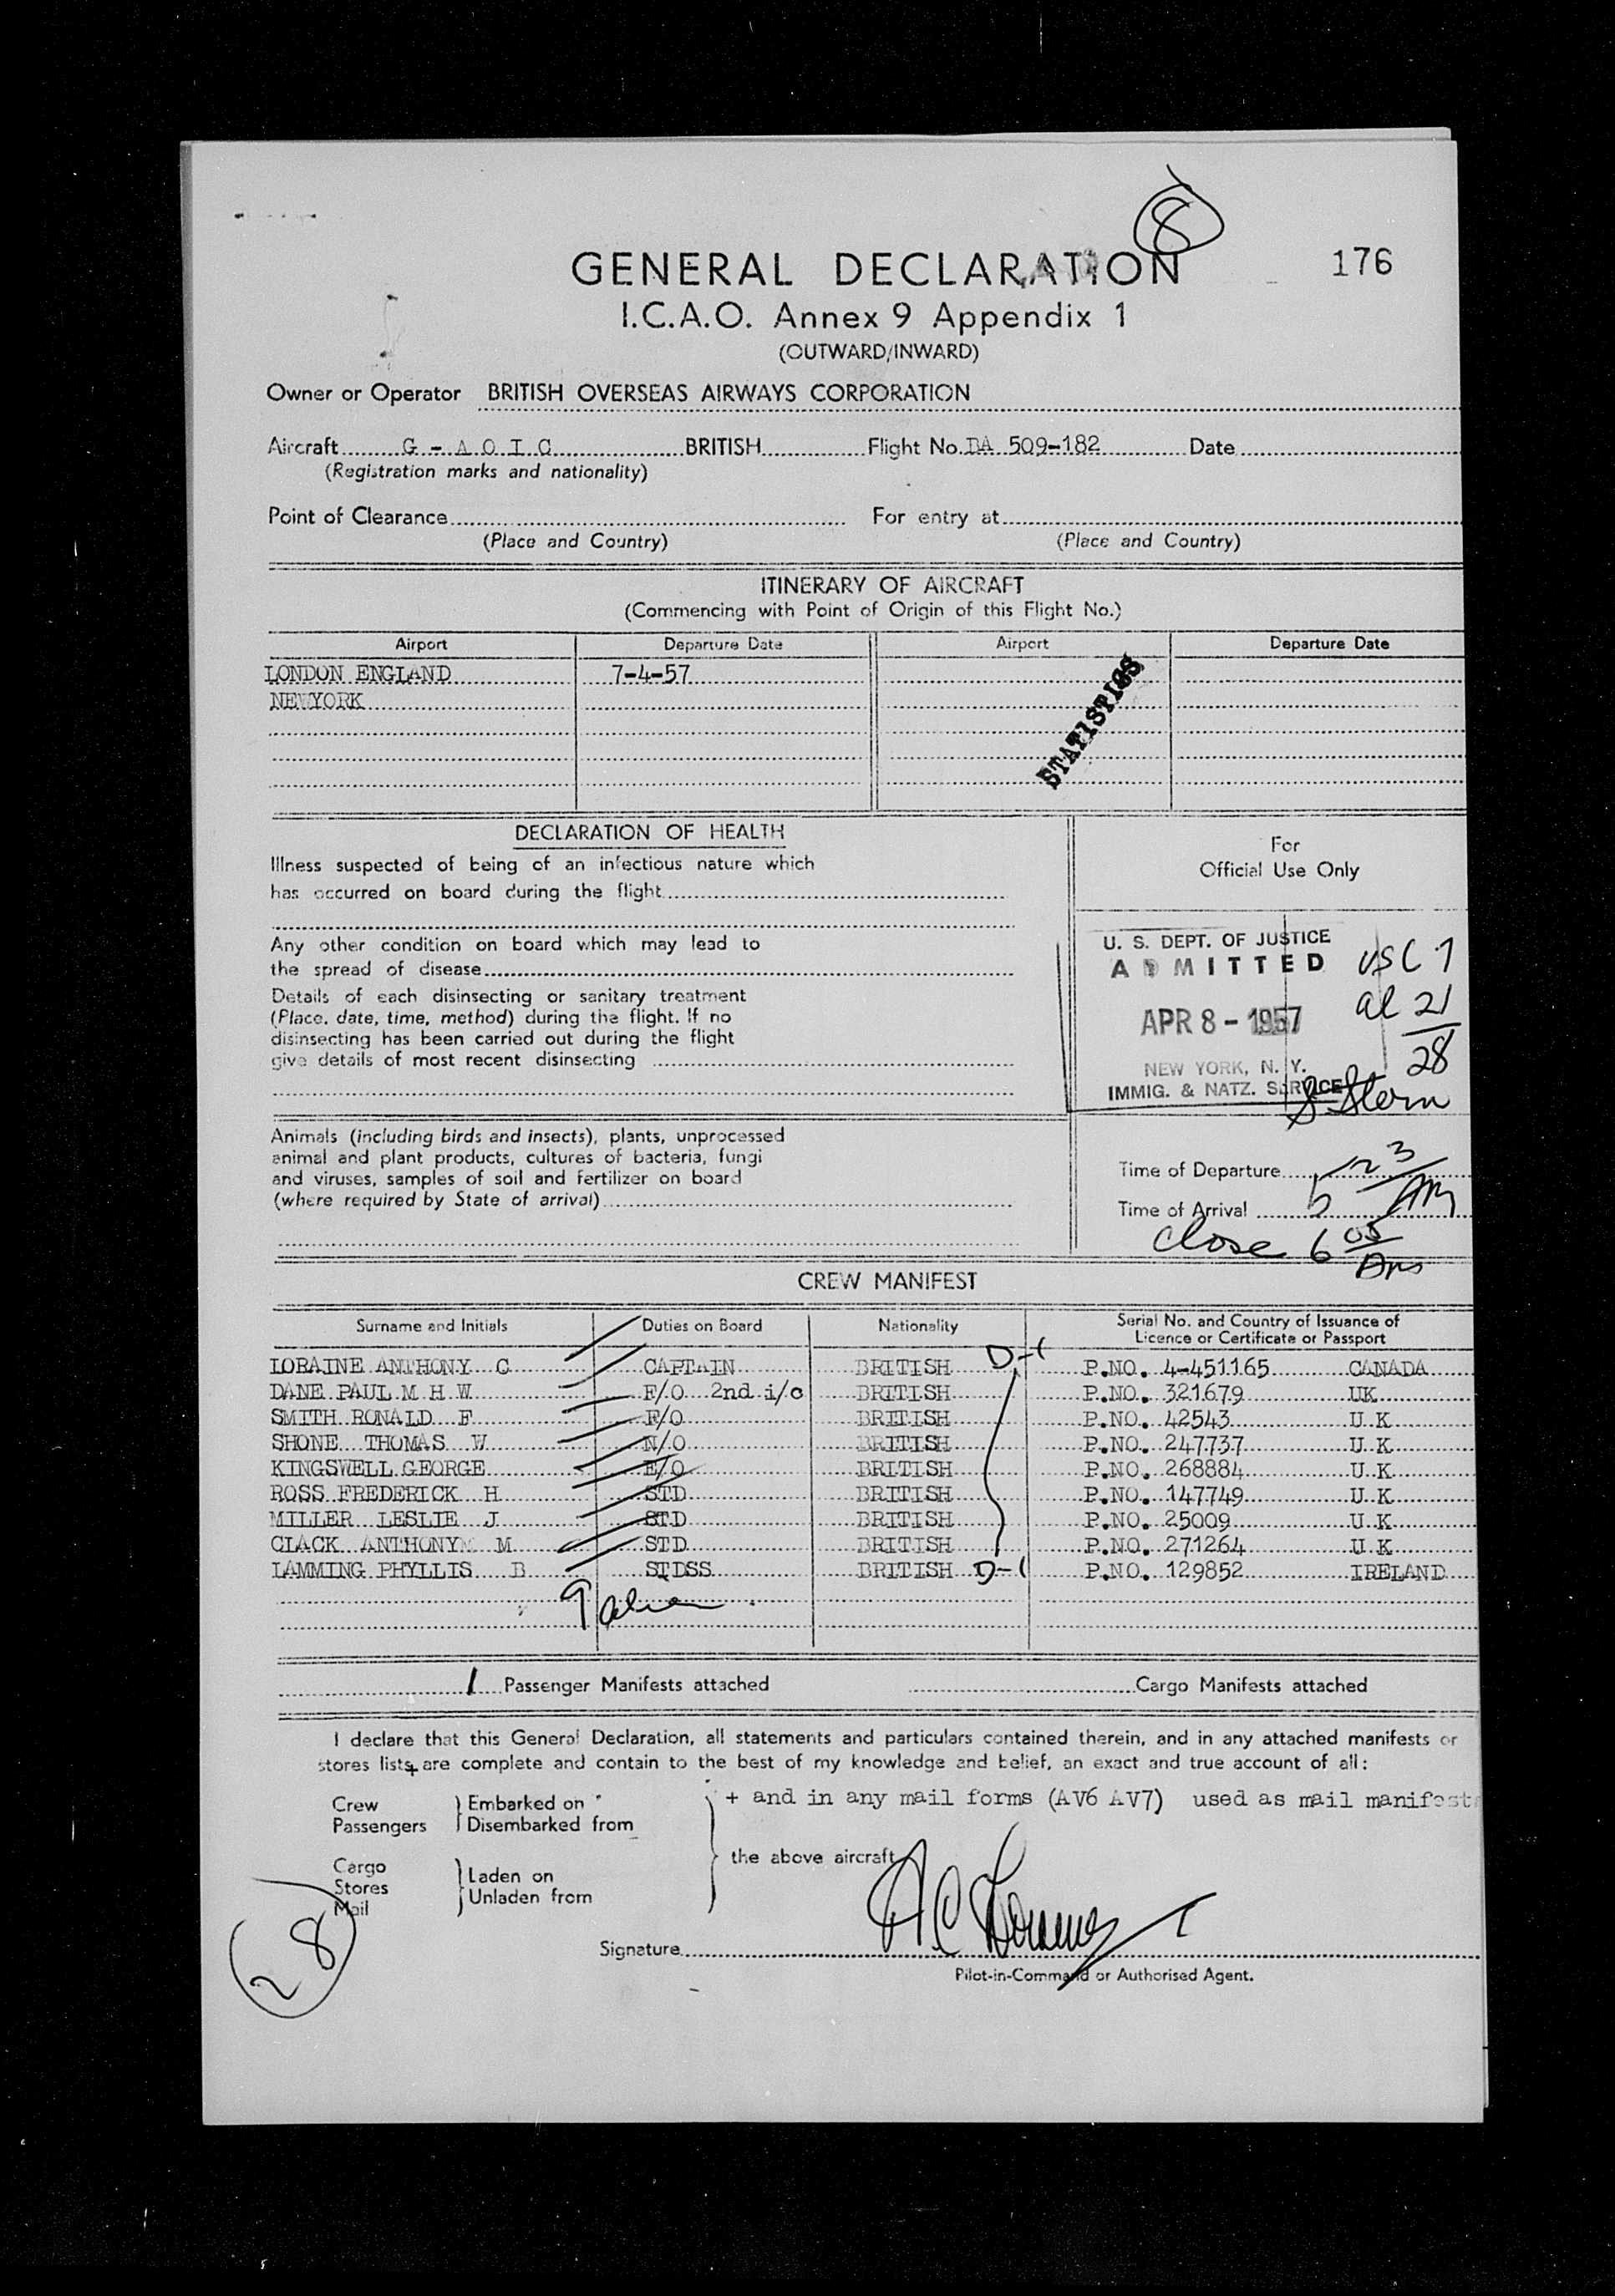 8
GENERAL DECLARATION 176
I.C.A.O. Annex 9 Appendix 1
(OUTWARD/INWARD)
Owner or Operator BRITISH OVERSEAS AIRWAYS CORPORATION
Aircraft G - A O I C BRITISH Flight No. BA 509-182 Date
(Registration marks and nationality)
Point of Clearance For entry at
(Place and Country) (Place and Country)
ITINERARY OF AIRCRAFT
(Commencing with Point of Origin of this Flight No.)
Airport Departure Date Airport Departure Date
LONDON ENGLAND 7-4-57
NEWYORK
STATISTICS
DECLARATION OF HEALTH
Illness suspected of being of an infectious nature which
has occurred on board during the flight
Any other condition on board which may lead to
the spread of disease
Details of each disinsecting or sanitary treatment
(Place, date, time, method) during the flight. If no
disinsecting has been carried out during the flight
give details of most recent disinsecting
For
Official Use Only
U. S. DEPT. OF JUSTICE
ADMITTED USC 7
APR 8 - 1957 al 21
NEW YORK, N. Y. 28
IMMIG. & NATZ. SERVICE
S Stern
Animals (including birds and insects), plants, unprocessed
animal and plant products, cultures of bacteria, fungi
and viruses, samples of soil and fertilizer on board
(where required by State of arrival)
Time of Departure
Time of Arrival 5 23 AM
Close 6 05 Am
CREW MANIFEST
Surname and Initials Duties on Board Nationality Serial No. and Country of Issuance of
Licence or Certificate or Passport
LORAINE ANTHONY C CAPTAIN BRITISH D-1 P.NO. 4-451165 CANADA
DANE PAUL M H W F/O 2nd i/c BRITISH P.NO. 321679 UK
SMITH RONALD F F/O BRITISH P.NO. 42543 U K
SHONE THOMAS W N/O BRITISH P.NO. 247737 U K
KINGSWELL GEORGE E/O BRITISH P.NO. 268884 U K
ROSS FREDERICK H STD BRITISH P.NO. 147749 U K
MILLER LESLIE J STD BRITISH P.NO. 25009 U K
CLACK ANTHONY M STD BRITISH P.NO. 271264 U K
LAMMING PHYLLIS B STDSS BRITISH D-1 P.NO. 129852 IRELAND
9 alien
1 Passenger Manifests attached Cargo Manifests attached
I declare that this General Declaration, all statements and particulars contained therein, and in any attached manifests or
stores lists+ are complete and contain to the best of my knowledge and belief, an exact and true account of all:
Crew Embarked on + and in any mail forms (AV6 AV7) used as mail manifests
Passengers Disembarked from
the above aircraft
Cargo Laden on
Stores Unladen from
Mail
28
Signature A C Loraine
Pilot-in-Command or Authorised Agent.